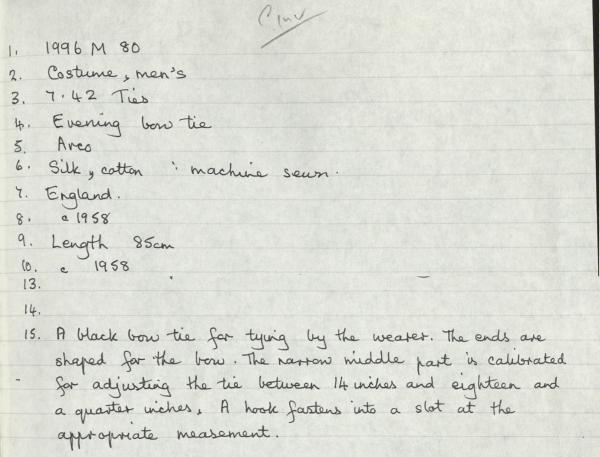 1. 1996 M 80
2. Costume, men's
3. 7.42 Ties
4. Evening bow tie
5. Arco
6. Silk, cotton : machine sewn.
7. England.
8. c 1958
9. Length 85cm
10. c 1958
13.
14.
15. A black bow tie for tying by the wearer. The ends are
shaped for the bow. The narrow middle part is calibrated
for adjusting the tie between 14 inches and eighteen and
a quarter inches, A hook fastens into a slot at the
appropriate measement.